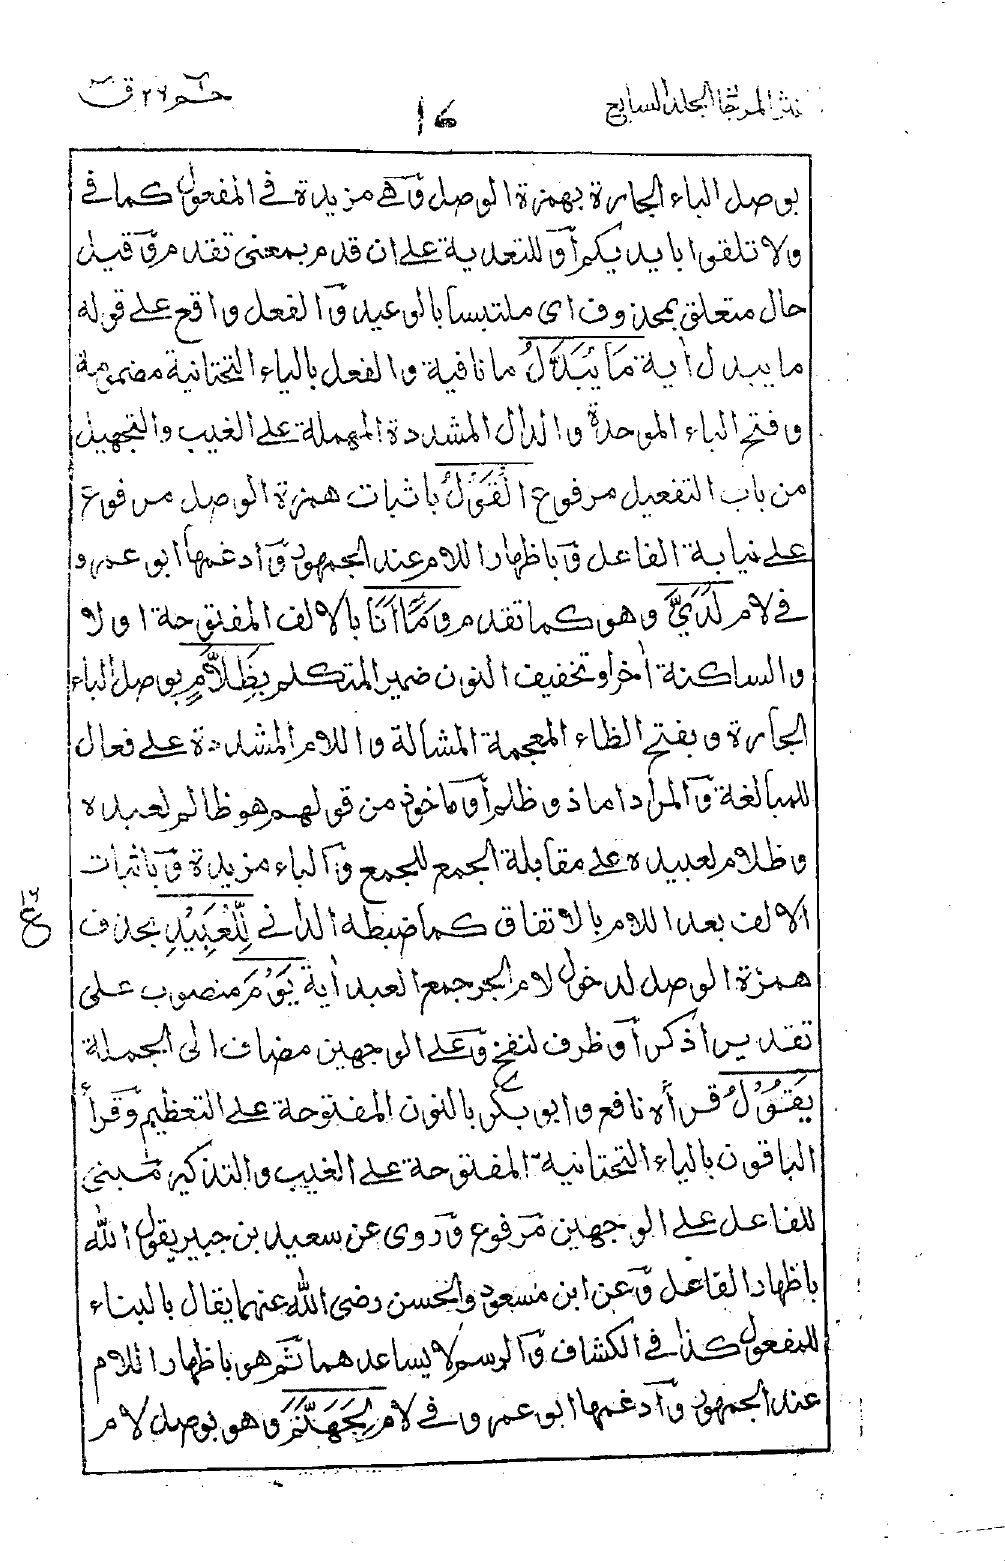 نثر المرجان المجلد السابع
١٤
حٰم ٢٦ ق
بوصل الباء الجارة بهمزة الوصل وهى مزيدة في المفعول كما في
ولا تلقوا بايديكم أو للتعدية على ان قدم بمعنى تقدم وقيل
حال متعلق بمحذوف اى ملتبسا بالوعيد والفعل واقع على قوله
ما يبدل أية مَا يُبَدَّلُ ما نافية والفعل بالياء التحتانية مضمومة
وفتح الباء الموحدة والدال المشددة المهملة على الغيب والتجهيل
من باب التفعيل مرفوع الْقَوْلُ باثبات همزة الوصل مرفوع
على نيابة الفاعل وباظهار اللام عند الجمهور وادغمها ابو عمرو
في لام لَدَيَّ وهو كما تقدم وَمَآ اَنَا بالالف المفتوحة اولا
والساكنة أخرا وتخفيف النون ضمير المتكلم بِظَلَّامٍ بوصل الباء
الجارة وبفتح الظاء المعجمة المشالة واللام المشددة على فعال
للمبالغة والمراد اما ذو ظلم أو ماخوذ من قولهم هو ظالم لعبده
وظلام لعبيده على مقابلة الجمع للجمع والباء مزيدة وباثبات
الالف بعد اللام بالاتفاق كما ضبطه الدانى لِّلْعَبِيْدِ بحذف
ع ١٦
همزة الوصل لدخول لام الجر جمع العبد أية يَوْمَ منصوب على
تقدير اذكر أو ظرف لنفخ وعلى الوجهين مضاف الى الجملة
يَقُوْلُ قرأه نافع وابو بكر بالنون المفتوحة على التعظيم وقرأ
الباقون بالياء التحتانية المفتوحة على الغيب والتذكير مبنى
للفاعل على الوجهين مرفوع وروى عن سعيد بن جبير يقول الله
باظهار الفاعل وعن ابن مسعود والحسن رضى الله عنهما يقال بالبناء
للمفعول كذا في الكشاف والرسم لا يساعدهما ثم هو باظهار اللام
عند الجمهور وادغمها ابو عمرو في لام لِجَهَنَّمَ وهو بوصل لام